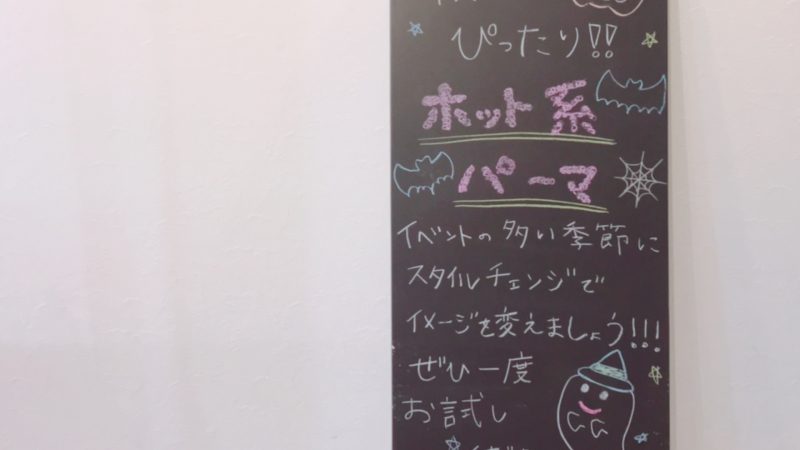 ぴったり!!
ホット系
パーマ
イベントの多い季節に
スタイルチェンジで
イメージを変えましょう!!!
ぜひ一度
お試し